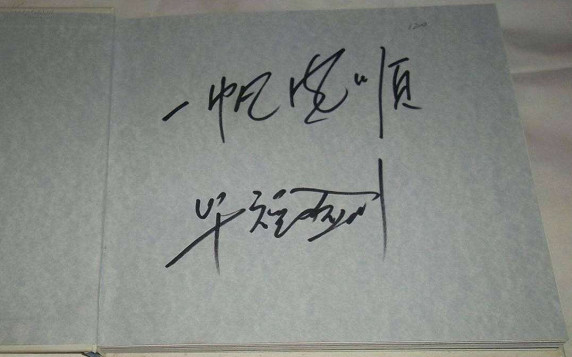 一帆风順
毕福剑